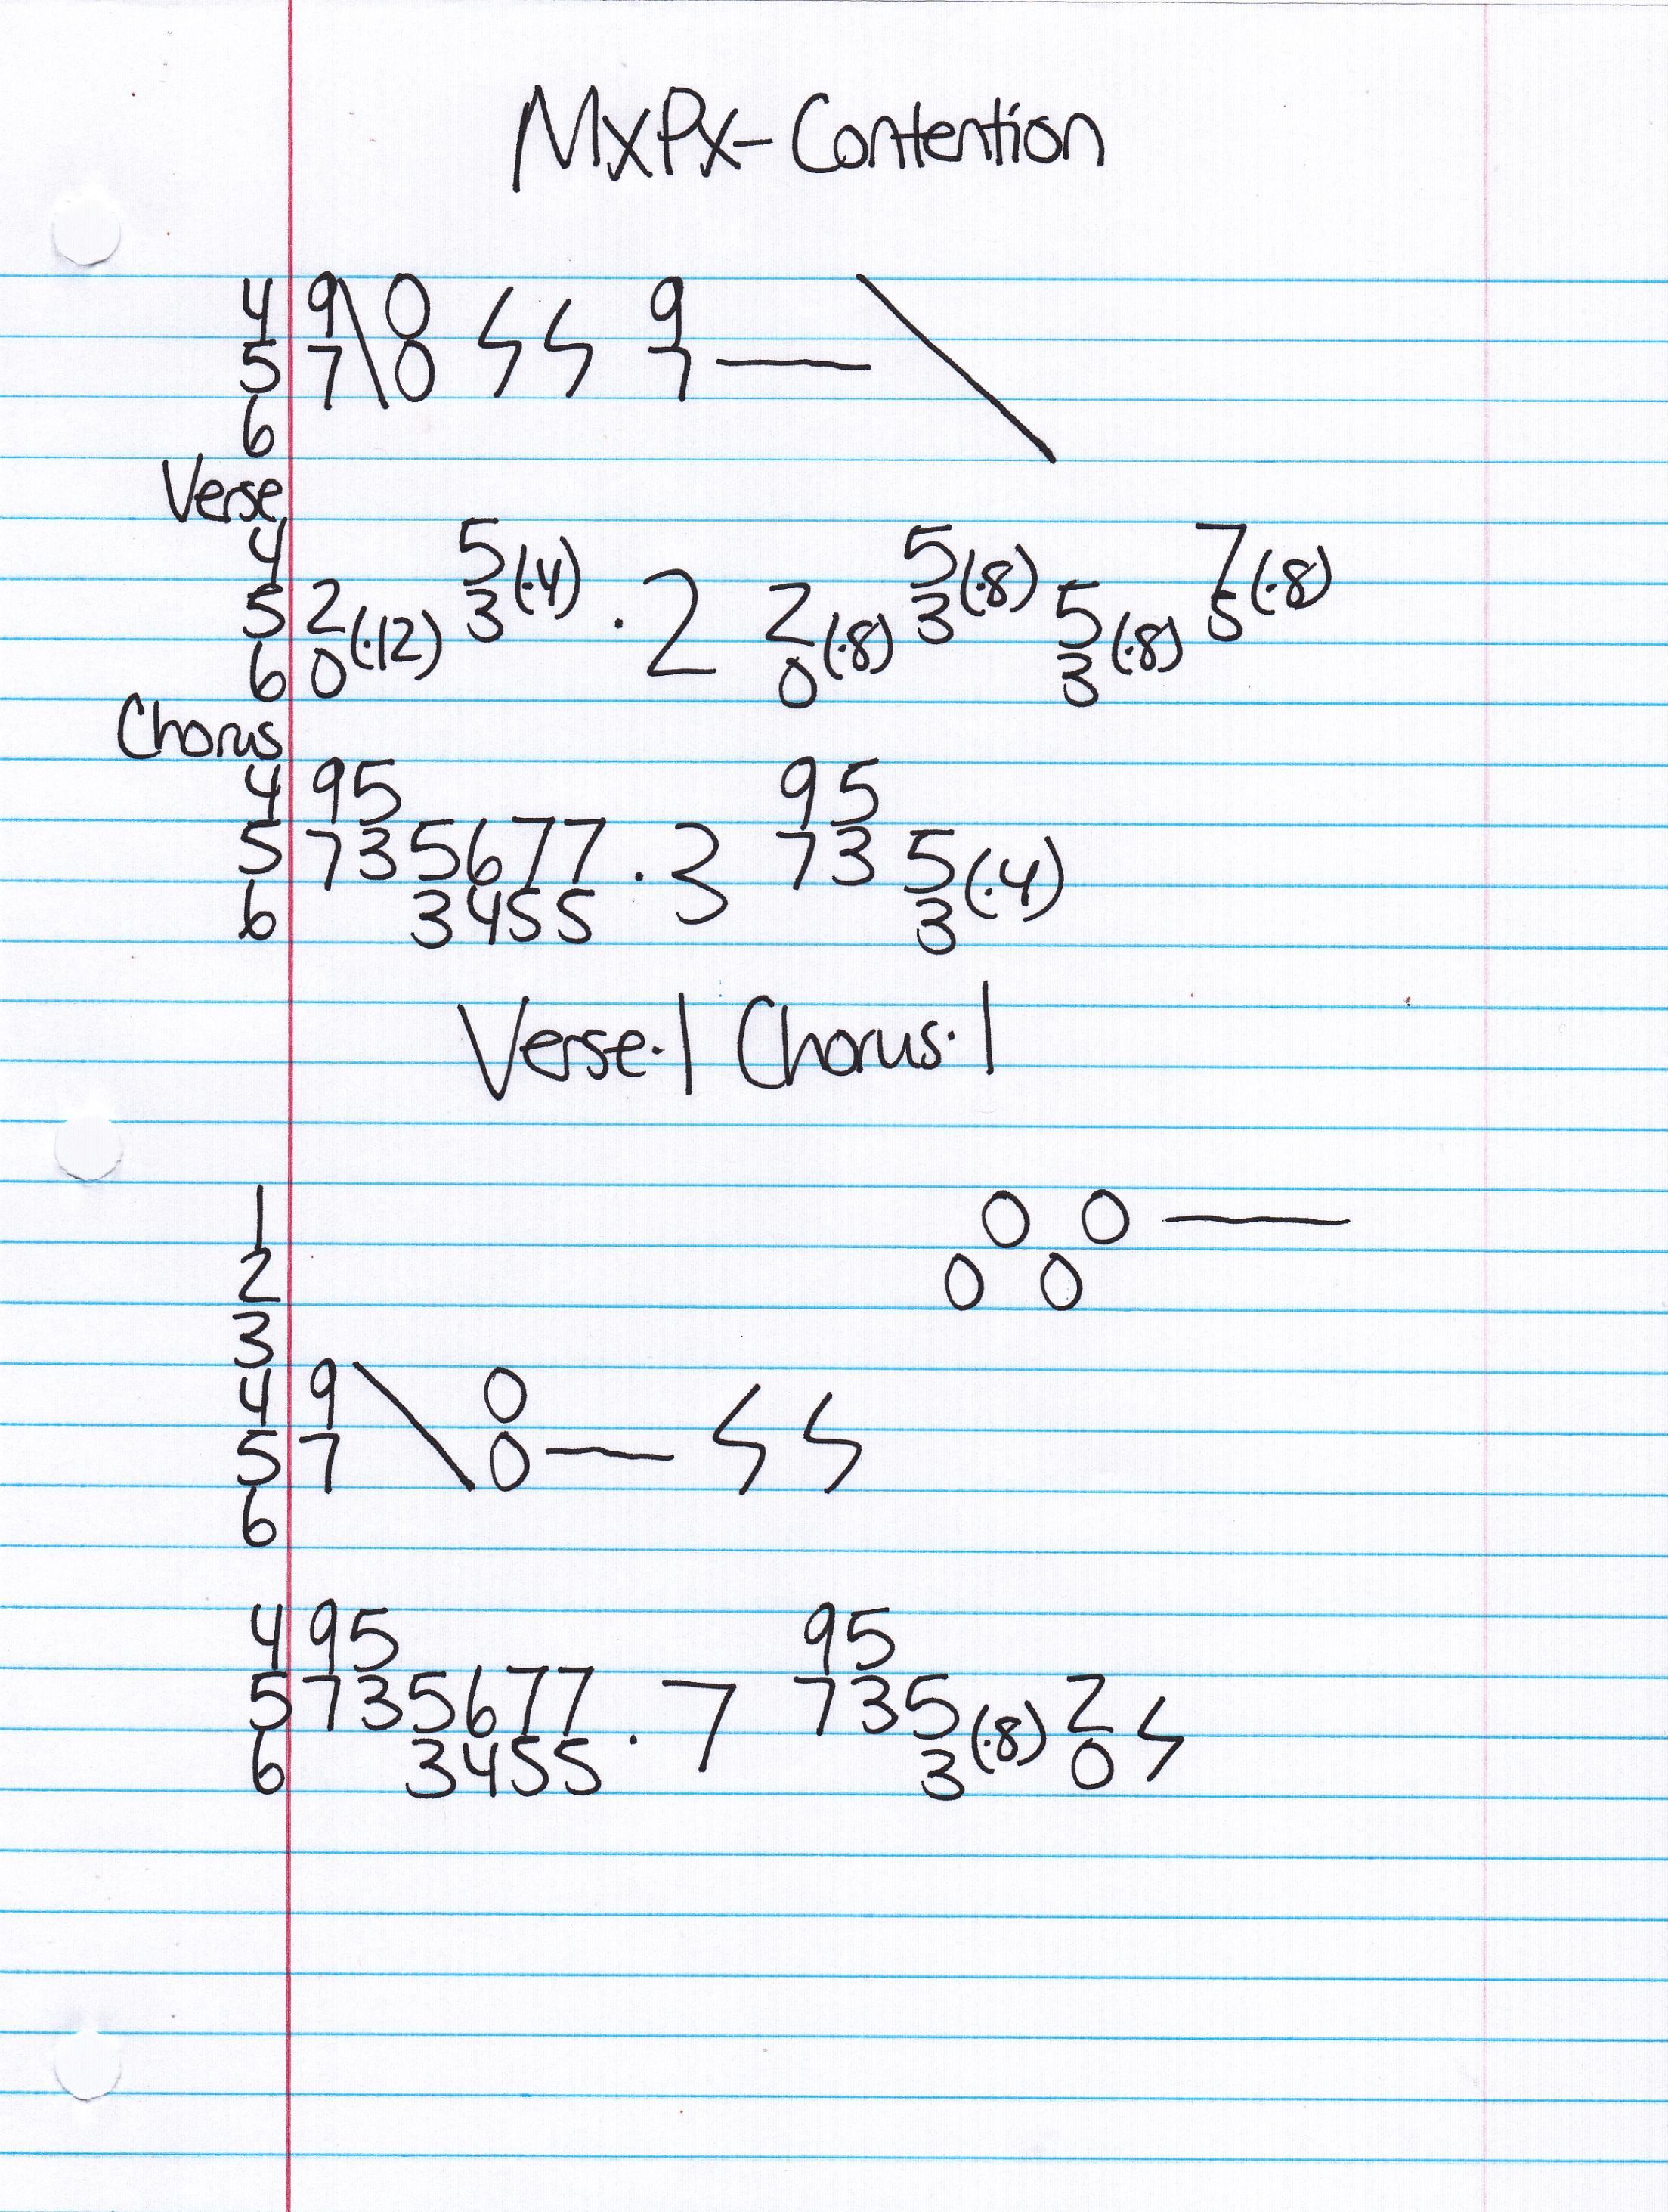 MxPx- Contention
4 9\0 ϟ ϟ 9
5 7 0 7—\
6
Verse
4 5(·4) 5(·8) 7(·8)
5 2 3 ·2 2 3 5 5
6 0(·12) 0(·8) 3(·8)
Chorus
4 95 95
5 735677 ·3 735
6 3455 3(·4)
Verse·1 Chorus·1
1 0 0 —
2 0 0
3
4 9\0
5 7 0— ϟ ϟ
6
4 95 95
5 735677 ·7 735 2
6 3455 3(·8) 0 ϟ